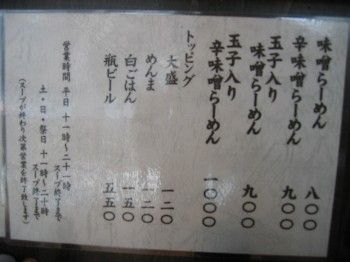 味噌らーめん 八〇〇
辛味噌らーめん 九〇〇
玉子入り
味噌らーめん 九〇〇
玉子入り
辛味噌らーめん 一〇〇〇
トッピング
大盛 一二〇
めんま 一二〇
白ごはん 一五〇
瓶ビール 五五〇
営業時間 平日 十一時〜二十一時
スープ終了まで
土・日・祭日 十一時〜二十時
スープ終了まで
(スープが終わり次第営業を終了致します)